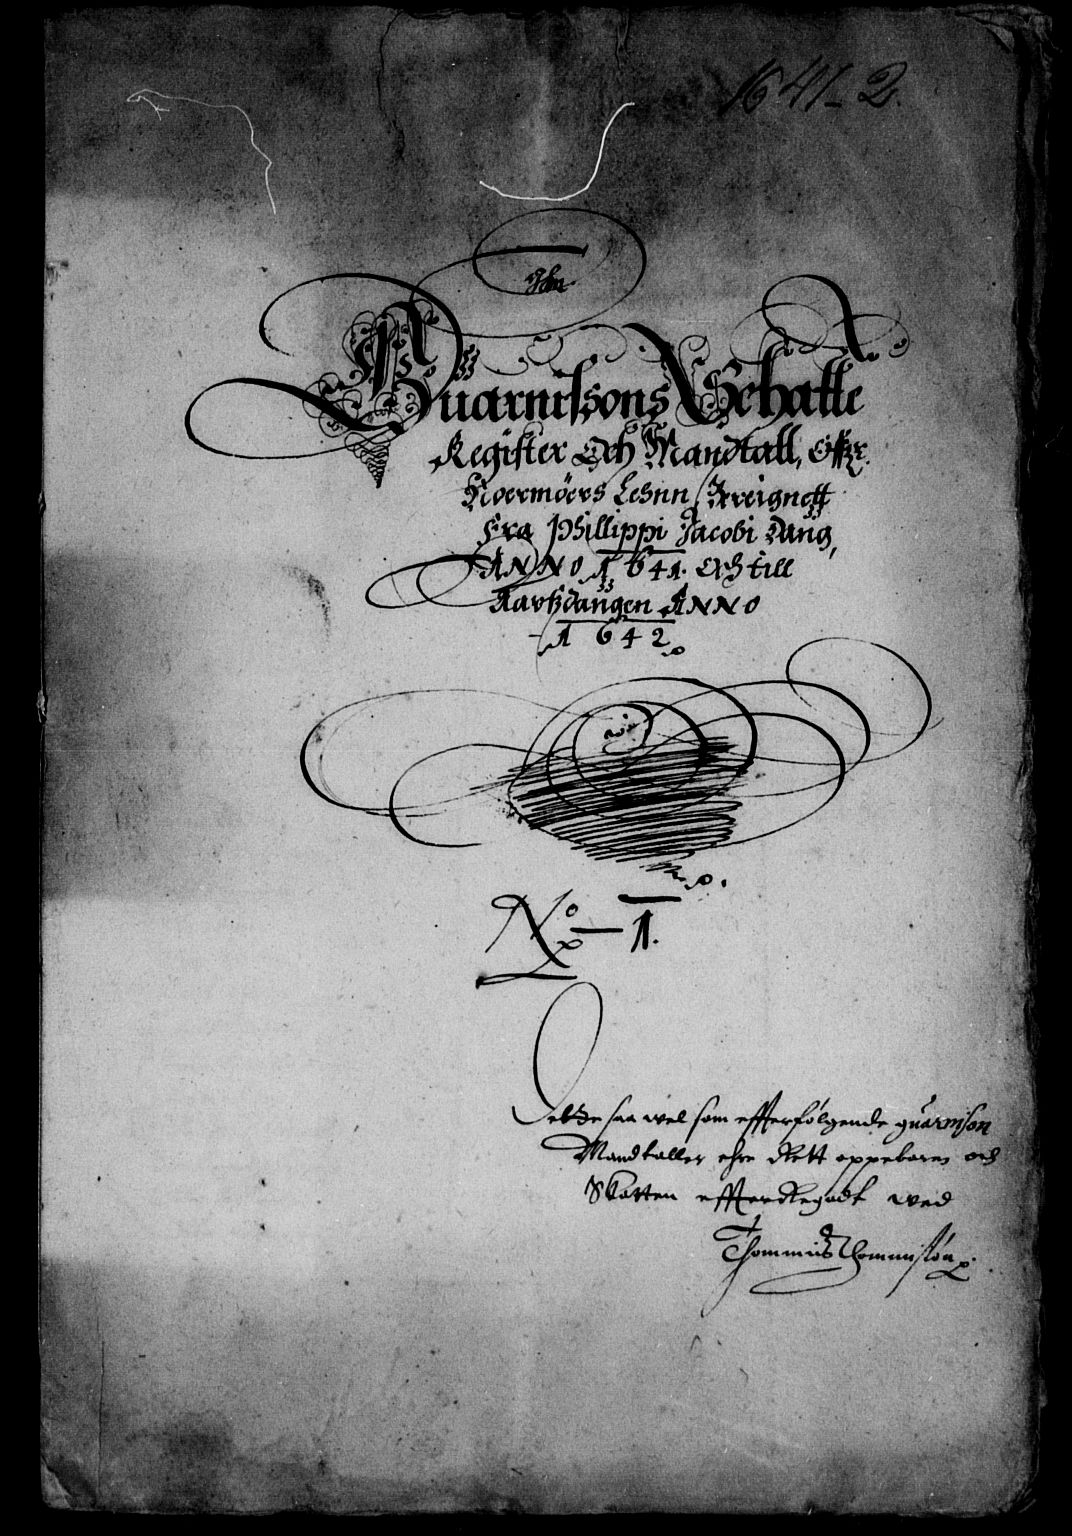 1641-2.
Guarnisons Schatte
Register Och Mandtall, Offr.
Noermöers Lehnn, Bereignett
Fra Phillippi Jacobi Dang,
ANNO 1641. Och till
Aarszdangen ANNO
1642
No 1.
Dette saa wel som effterfölgende guarnison
Mandtaller ehre Rett oppebaaren och
Skatten effter Regadt wed
Thommis Thommissön